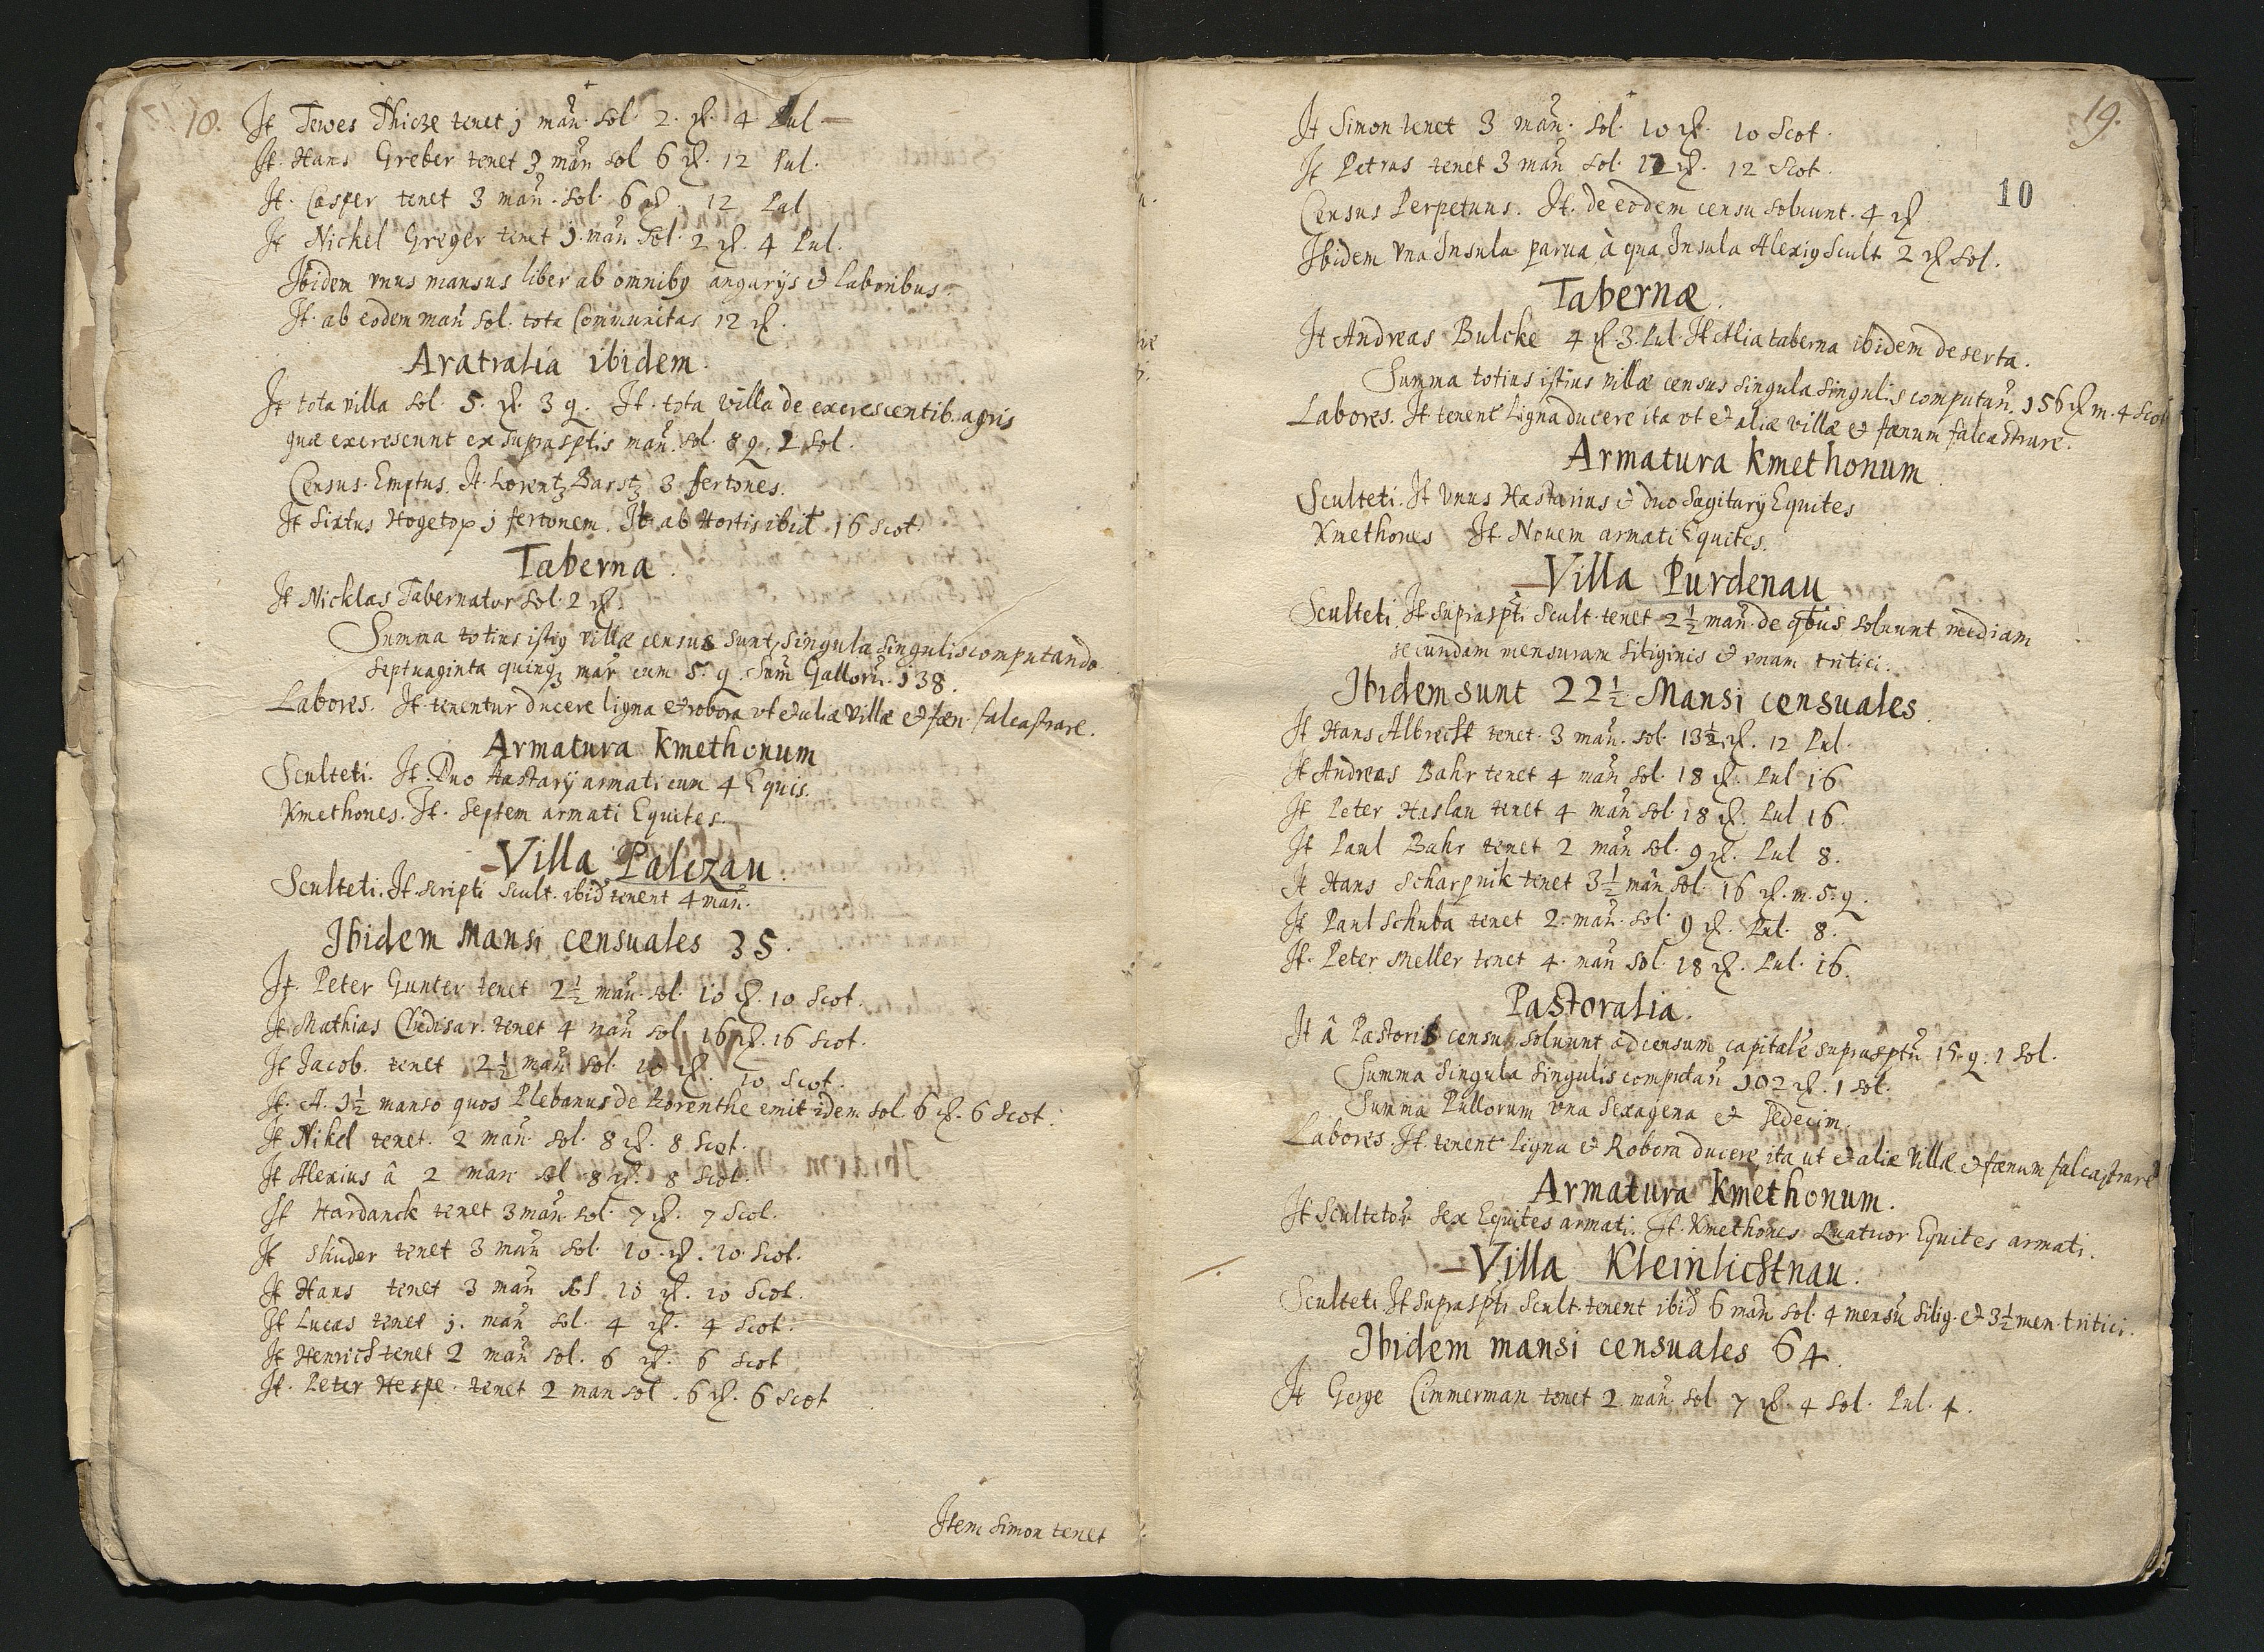 18.
It Tewes Thicze tenet j mañ. sol. 2. ɱ. 4 Pul
It. Hans Greber tenet 3 mañ sol 6 ɱ. 12 Pul.
It. Casper tenet 3 mañ. sol. 6 ɱ. 12 Pul
It Nickel Greger tenet j. mañ sol. 2 ɱ. 4 Pul.
Ibidem vnus mansus liber ab omnibq angarijs et Laboribus.
It. ab eodem mañ sol. tota Communitas 12 ɱ.
Aratralia ibidem.
It tota villa sol. 5. ɱ. 3 q. It. tota villa de excrescentib. agris
quæ excrescunt ex suprasptis mañ. sol. 8 q. 2 sol.
Census Emptus. It. Lorentz Barstz 3 fertones.
It Sixtus Hogetop j fertonem. It ab Hortis ibid 16 scot.
Taberna.
It Nicklas Tabernator sol. 2 ɱ.
Summa totius istiq villæ census sunt, singula singulis computando
septuaginta quinqz mar cum 5. q. Sum Gallorũ. 138.
Labores. It. tenentur ducere ligna et robora vt et aliæ villæ et fæn. falcastrare.
Armatura Kmethonum
Sculteti. It. Duo Hastarij armati cum 4 Equis.
Kmethones. It. Septem armati Equites.
Villa Palczau.
Sculteti. It scripti scult. ibid tenent 4 mañ.
Ibidem Mansi censuales 35.
It. Peter Gunter tenet 2½ mañ. sol. 10 ɱ. 10 Scot.
It. Mathias Chedisar. tenet 4 mañ sol. 16 ɱ. 16 scot.
It Jacob. tenet 2½ mañ sol. 10 ɱ. 10 scot.
It. A. 1½ manso quos Plebanus de emit idem sol. 6 ɱ. 6 Scot.
It Nikel tenet. 2 mañ. sol. 8 ɱ. 8 scot.
It Alexius â 2 man sol 8 ɱ. 8 Scot.
It Hardanck tenet 3 mañ sol. 7 ɱ. 7 Scot.
It tenet 3 mañ sol. 10. ɱ. 10 Scot.
It Hans tenet 3 mañ sol 10 ɱ. 10 Scot.
It Lucas tenet j. mañ sol. 4 ɱ. 4 Scot.
It Henrich tenet 2 mañ sol. 6 ɱ. 6 scot
It. Peter Hespe. tenet 2 man sol. 6 ɱ. 6 scot
Item Simon tenet
19.
10
It Simon tenet 3 mañ. sol. 10 ɱ. 10 Scot.
It Petras tenet 3 mañ sol. 12 ɱ. 12 Scot.
Census Perpetuus. It. de eodem censu soluunt. 4 ɱ
Ibidem vna Insula parua à qua Insula Alexiq Scult 2 ɱ sol.
Tabernæ.
It Andreas Bulcke 4 ɱ 3. Pul. It Alia taberna ibidem deserta.
Summa totius istius villæ census singula singulis computañ. 156 ɱ m. 4 Scot
Labores. It tenent Ligna ducere ita vt et aliæ villæ et fænum falcastrare.
Armatura Kmethonum.
Sculteti. It Vnus Hastarius et duo Sagitarij Equites
Kmethones It. Nouem armati Equites.
Villa Purdenau
Sculteti. It supraspti Scult. tenet 2½ mañ. de qbus soluunt mediam
secundam mensuram siliginis et vnam tritici.
Ibidem sunt 22½ Mansi censuales.
It Hans Albrecht tenet. 3 mañ. sol. 13½ ɱ. 12 Pul.
It Andreas Bahr tenet 4 mañ sol. 18 ɱ. Pul 16
It Peter Haslau tenet 4 mañ sol. 18 ɱ. Pul 16.
It Paul Bahr tenet 2 mañ sol. 9 ɱ. Pul 8.
It Hans Scharpnik tenet 3½ mañ sol. 16 ɱ. m. 5. q.
It Paul Schuba tenet 2. mañ. sol. 9 ɱ. Pul. 8.
It. Peter Meller tenet 4. mañ sol. 18 ɱ. Pul. 16.
Pastoralia.
It â Pastoris censu soluunt ad censum capitalē suprasptũ 15. q. 1 sol.
Summa singula singulis computañ 102 ɱ. 1 sol.
Summa Pullorum vna sexagena et sedecim.
Labores. It. tenent ligna et Robora ducere ita ut et aliæ villæ et fænum falcastrare
Armatura Kmethonum.
It Scultetor sex Equites armati. It. Kmethones Quatuor Equites armati.
Villa Kleinlichtnau.
Sculteti. It supraspti Scult. tenent ibid 6 mañ sol. 4 mensũ silig. et 3½ men. tritici.
Ibidem mansi censuales 64.
It Gerge Cimmerman tenet 2. mañ. sol 7 ɱ. 4 sol. Pul. 4.